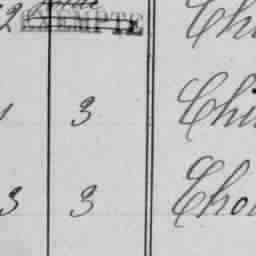 2 EXEMPTE Chi
3 Chi
3 3 Cho